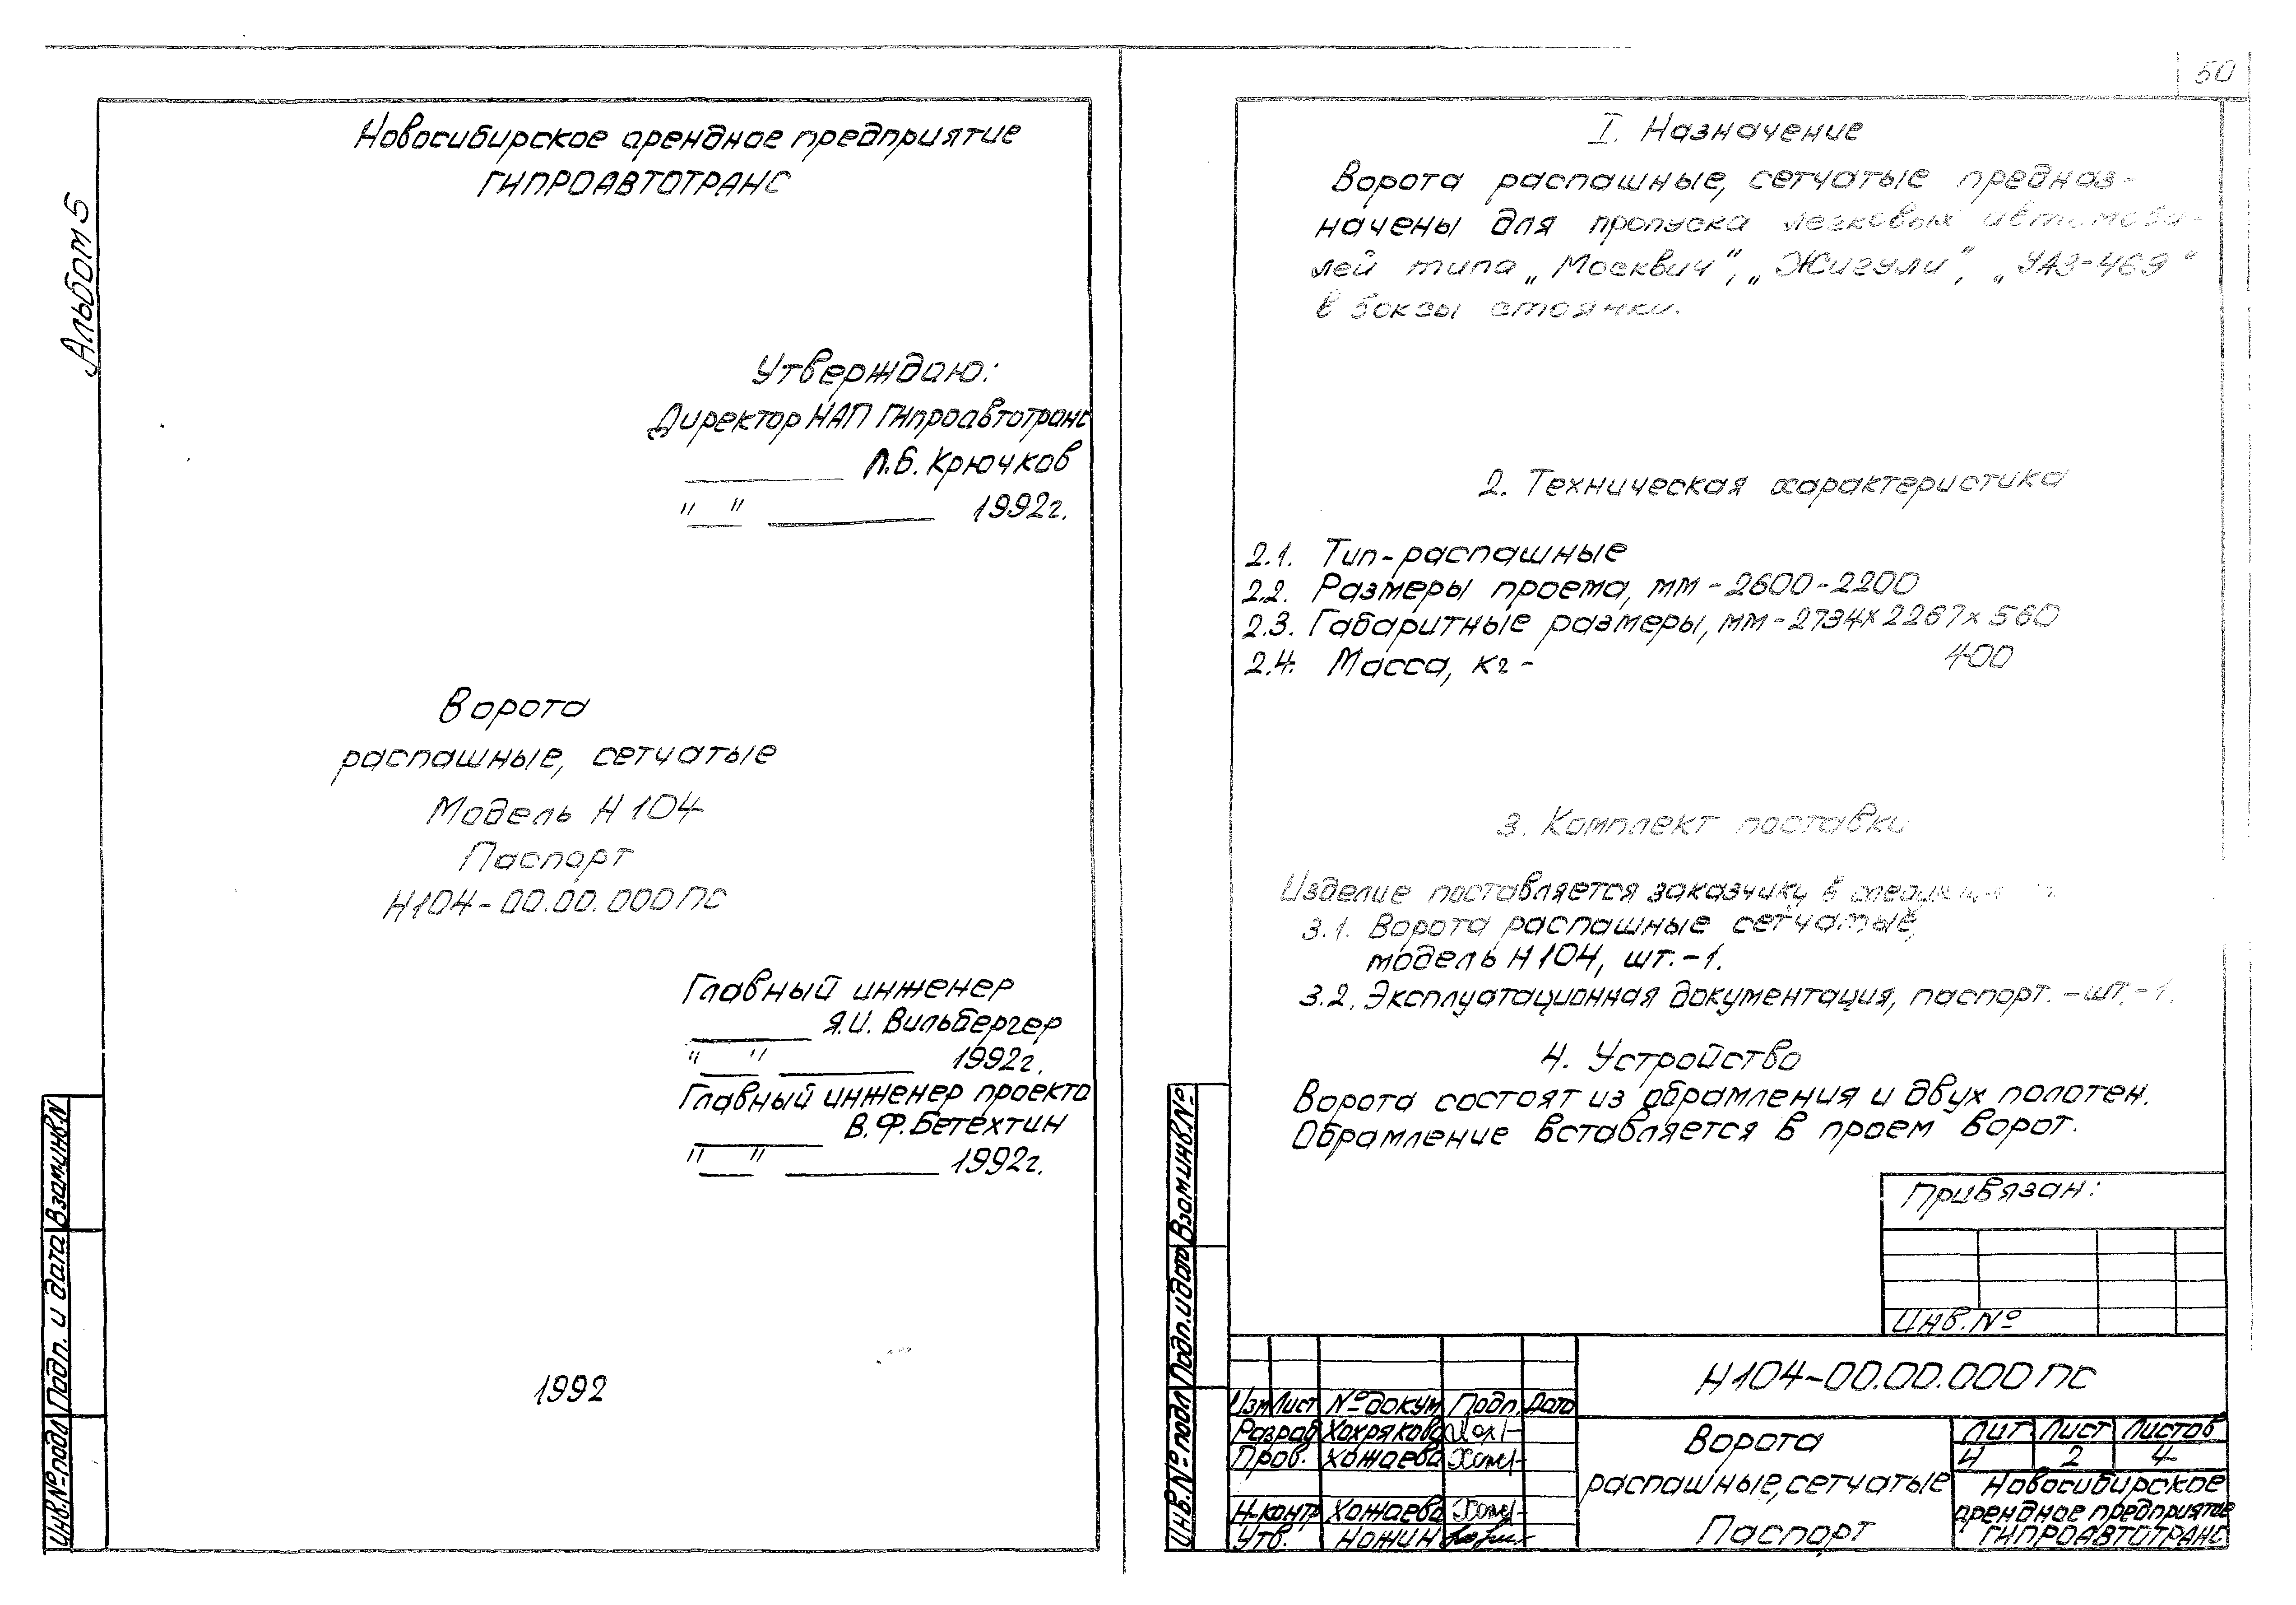 Альбом 5
Новосибирское арендное предприятие
ГИПРОАВТОТРАНС
Утверждаю:
Директор НАП Гипроавтотранс
Л.Б. Крючков
" " 1992г.
Ворота
распашные, сетчатые
Модель Н 104
Паспорт
Н104-00.00.000ПС
Главный инженер
Я.И. Вильбергер
" " 1992г.
Главный инженер проекта
В.Ф.Бетехтин
" " 1992г.
1992
Взам.инв.N
Подп. и дата
Инв.№подл
50
I. Назначение
Ворота распашные, сетчатые предназ-
начены для пропуска легковых автомоби-
лей типа „Москвич", „Жигули", „УАЗ-469"
в боксы стоянки.
2. Техническая характеристика
2.1. Тип-распашные
2.2. Размеры проема, мм -2600-2200
2.3. Габаритные размеры, мм-2734х2267х560
2.4. Масса, кг - 400
3. Комплект поставки
Изделие поставляется заказчику в
3.1. Ворота распашные сетчатые,
модель Н 104, шт.-1.
3.2. Эксплуатационная документация, паспорт.-шт.-1.
4. Устройство
Ворота состоят из обрамления и двух полотен.
Обрамление вставляется в проем ворот.
Привязан:
Инв.№
Взам.инв.№
Подп.и дата
Инв.№ подл
Н104-00.00.000ПС
Изм Лист №докум Подп. Дата
Разраб Хохрякова
Пров. Хожаева
Н-контр Хожаева
Утв. Ножин
Ворота
распашные, сетчатые
Паспорт
Лит Лист Листов
И 2 4
Новосибирское
арендное предприятие
ГИПРОАВТОТРАНС